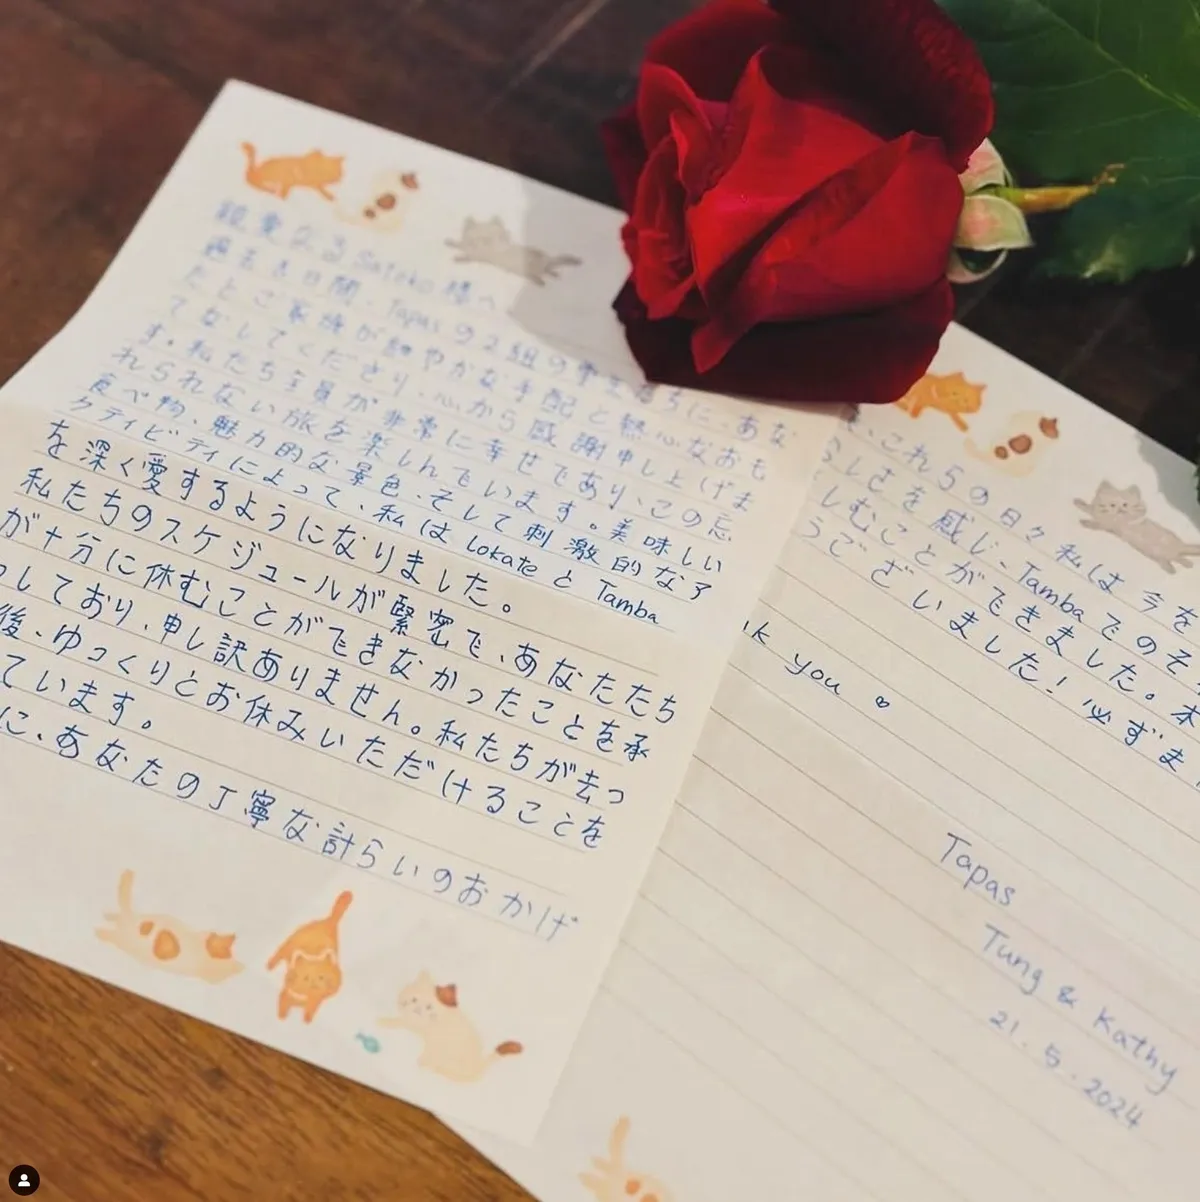 親愛なるSatoko様へ
過去8日間、Tapasの2組の学生たちに、あな
たとご家族が細やかな手配と熱心なおも
てなしてくださり、心から感謝申し上げま
す。私たち全員が非常に幸せであり、この忘
れられない旅を楽しんでいます。美味しい
食べ物、魅力的な景色、そして刺激的なア
クティビティによって、私はLokateとTamba
を深く愛するようになりました。
私たちのスケジュールが緊密で、あなたたち
が十分に休むことができなかったことを承
しており、申し訳ありません。私たちが去っ
後、ゆっくりとお休みいただけることを
ています。
に、あなたの丁寧な計らいのおかげ
、これらの日々私は今を
らしさを感じ、Tambaでのそ
しむことができました。本
うございました！必ずま
you ♡
Tapas
Tung & Kathy
21.5.2024